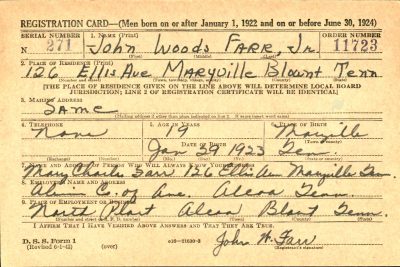 REGISTRATION CARD—(Men born on or after January 1, 1922 and on or before June 30, 1924)
SERIAL NUMBER 1. NAME (Print) ORDER NUMBER
N 271 John Woods FARR, Jr. 11723
(First) (Middle) (Last)
2. PLACE OF RESIDENCE (Print)
126 Ellis Ave MARYVILLE Blount Tenn
(Number and street) (Town, township, village, or city) (County) (State)
[THE PLACE OF RESIDENCE GIVEN ON THE LINE ABOVE WILL DETERMINE LOCAL BOARD
JURISDICTION; LINE 2 OF REGISTRATION CERTIFICATE WILL BE IDENTICAL]
3. MAILING ADDRESS
SAME
[Mailing address if other than place indicated on line 2. If same insert word same]
4. TELEPHONE 5. AGE IN YEARS 6. PLACE OF BIRTH
None 19 Maryville
DATE OF BIRTH (Town or county)
Jan 1923 Tenn
(Exchange) (Number) (Mo.) (Day) (Yr.) (State or country)
7. NAME AND ADDRESS OF PERSON WHO WILL ALWAYS KNOW YOUR ADDRESS
Mary Charles Farr, 126 Ellis Ave Maryville Tenn.
8. EMPLOYER'S NAME AND ADDRESS
Alum. Co. of Am. Alcoa Tenn.
9. PLACE OF EMPLOYMENT OR BUSINESS
North Plant Alcoa Blount Tenn.
(Number and street or R. F. D. number) (Town) (County) (State)
I AFFIRM THAT I HAVE VERIFIED ABOVE ANSWERS AND THAT THEY ARE TRUE.
D. S. S. Form 1
(Revised 6-9-42) (over) John W. Farr
(Registrant's signature)